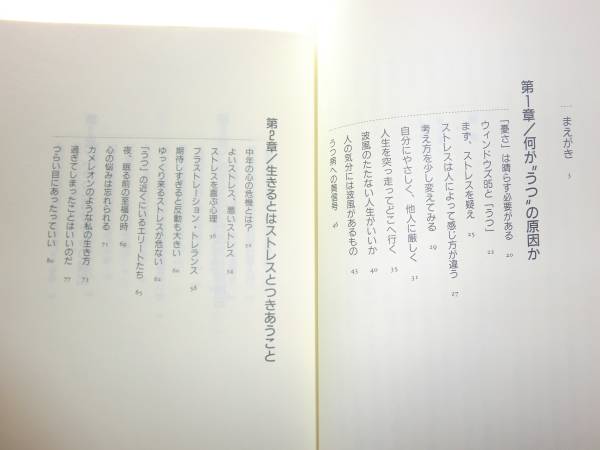 まえがき 5
第1章/何が“うつ”の原因か
「憂さ」は晴らす必要がある 20
ウィンドウズ95と「うつ」 22
まず、ストレスを疑え 25
ストレスは人によって感じ方が違う 27
考え方を少し変えてみる 29
自分にやさしく、他人に厳しく 31
人生を突っ走ってどこへ行く 35
波風のたたない人生がいいか 40
人の気分には波風があるもの 43
うつ病への黄信号 46
第2章/生きるとはストレスとつきあうこと
中年の心の危機とは? 52
よいストレス、悪いストレス 54
ストレスを喜ぶ心理 56
フラストレーション・トレランス 58
期待しすぎると反動も大きい 60
ゆっくり来るストレスが危ない 62
「うつ」の近くにいるエリートたち 65
夜、眠る前の至福の時 69
心の悩みは忘れられる 71
カメレオンのような私の生き方 73
過ぎてしまったことはいいのだ 77
つらい目にあったっていい 80